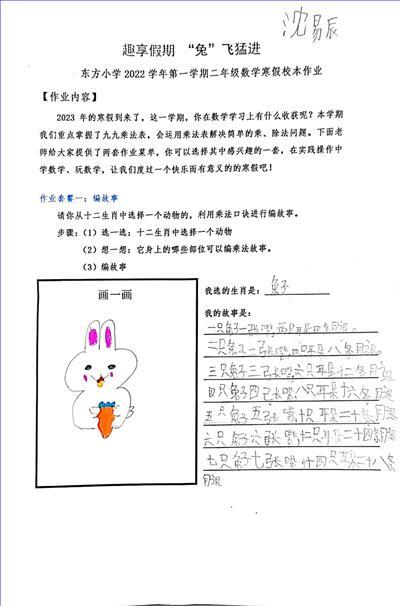 沈易辰
趣享假期 “兔”飞猛进
东方小学2022学年第一学期二年级数学寒假校本作业
【作业内容】
2023 年的寒假到来了，这一学期，你在数学学习上有什么收获呢？本学期
我们重点掌握了九九乘法表，会运用乘法表解决简单的乘、除法问题。下面老
师给大家提供了两套作业菜单，你可以选择其中感兴趣的一套，在实践操作中
学数学、玩数学，让我们度过一个快乐而有意义的的寒假吧！
作业套餐一：编故事
请你从十二生肖中选择一个动物的，利用乘法口诀进行编故事。
步骤：（1）选一选：十二生肖中选择一个动物
（2）想一想：它身上的哪些部位可以编乘法故事。
（3）编故事
画一画
我选的生肖是：兔子
我的故事是：
一只兔子一张嘴，两只耳朵四条腿。
二只兔子二张嘴，四只耳朵八条腿。
三只兔子三张嘴六只耳朵十二条腿
四只兔子四张嘴，八只耳朵十六条腿
五只兔子五张嘴，十只耳朵二十条腿
六只兔子六张嘴，十二只耳朵二十四条腿
七只兔子七张嘴，十四只耳朵二十八条
腿